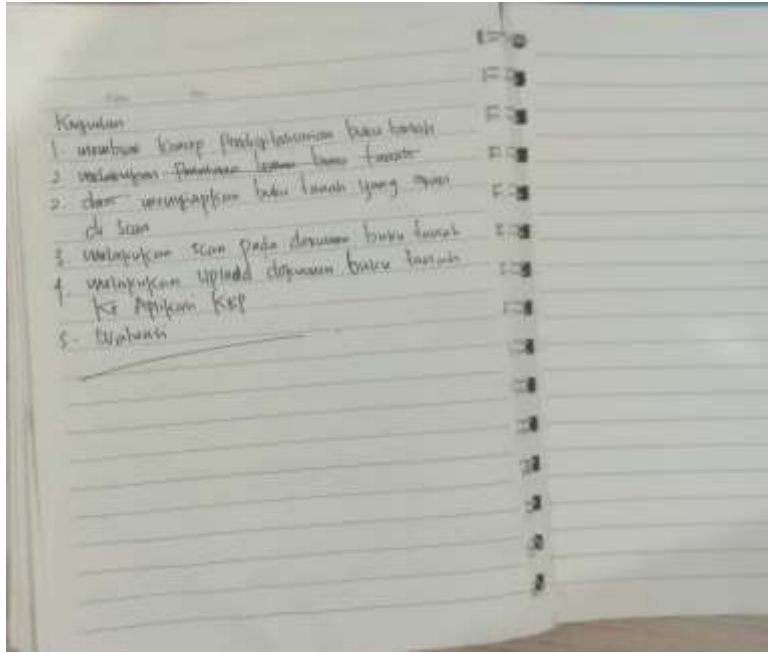 Kegiatan
1 membuat konsep buku tanah
2 melakukan buku tanah
2. dan menyiapkan buku tanah yang akan
di scan
3. melakukan scan pada dokumen buku tanah
4. melakukan upload dokumen buku tanah
Ke Aplikasi KKP
5. Evaluasi